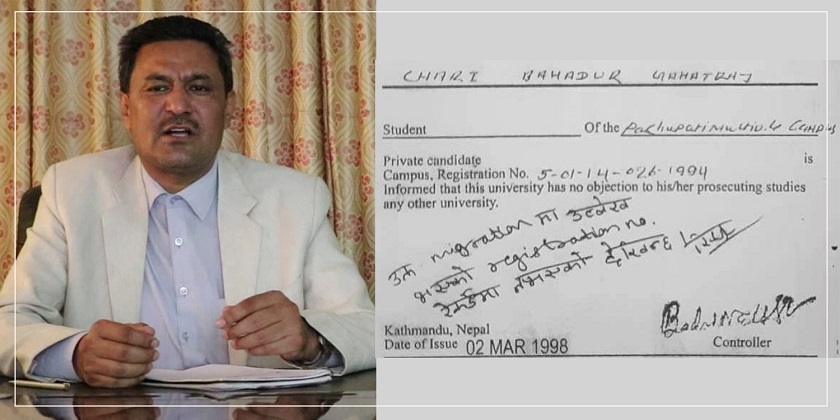 CHARI BAHADUR GAHATRAJ
Student Of the Pashupati Multiple Campus
Private candidate
is
Campus, Registration No. 5-01-14-026-1994
Informed that this university has no objection to his/her prosecuting studies
any other university.
उक्त migration मा उल्लेख
भएको registration no.
रेकर्डमा नभएको देखिन्छ
Kathmandu, Nepal
Date of Issue 02 MAR 1998
Controller